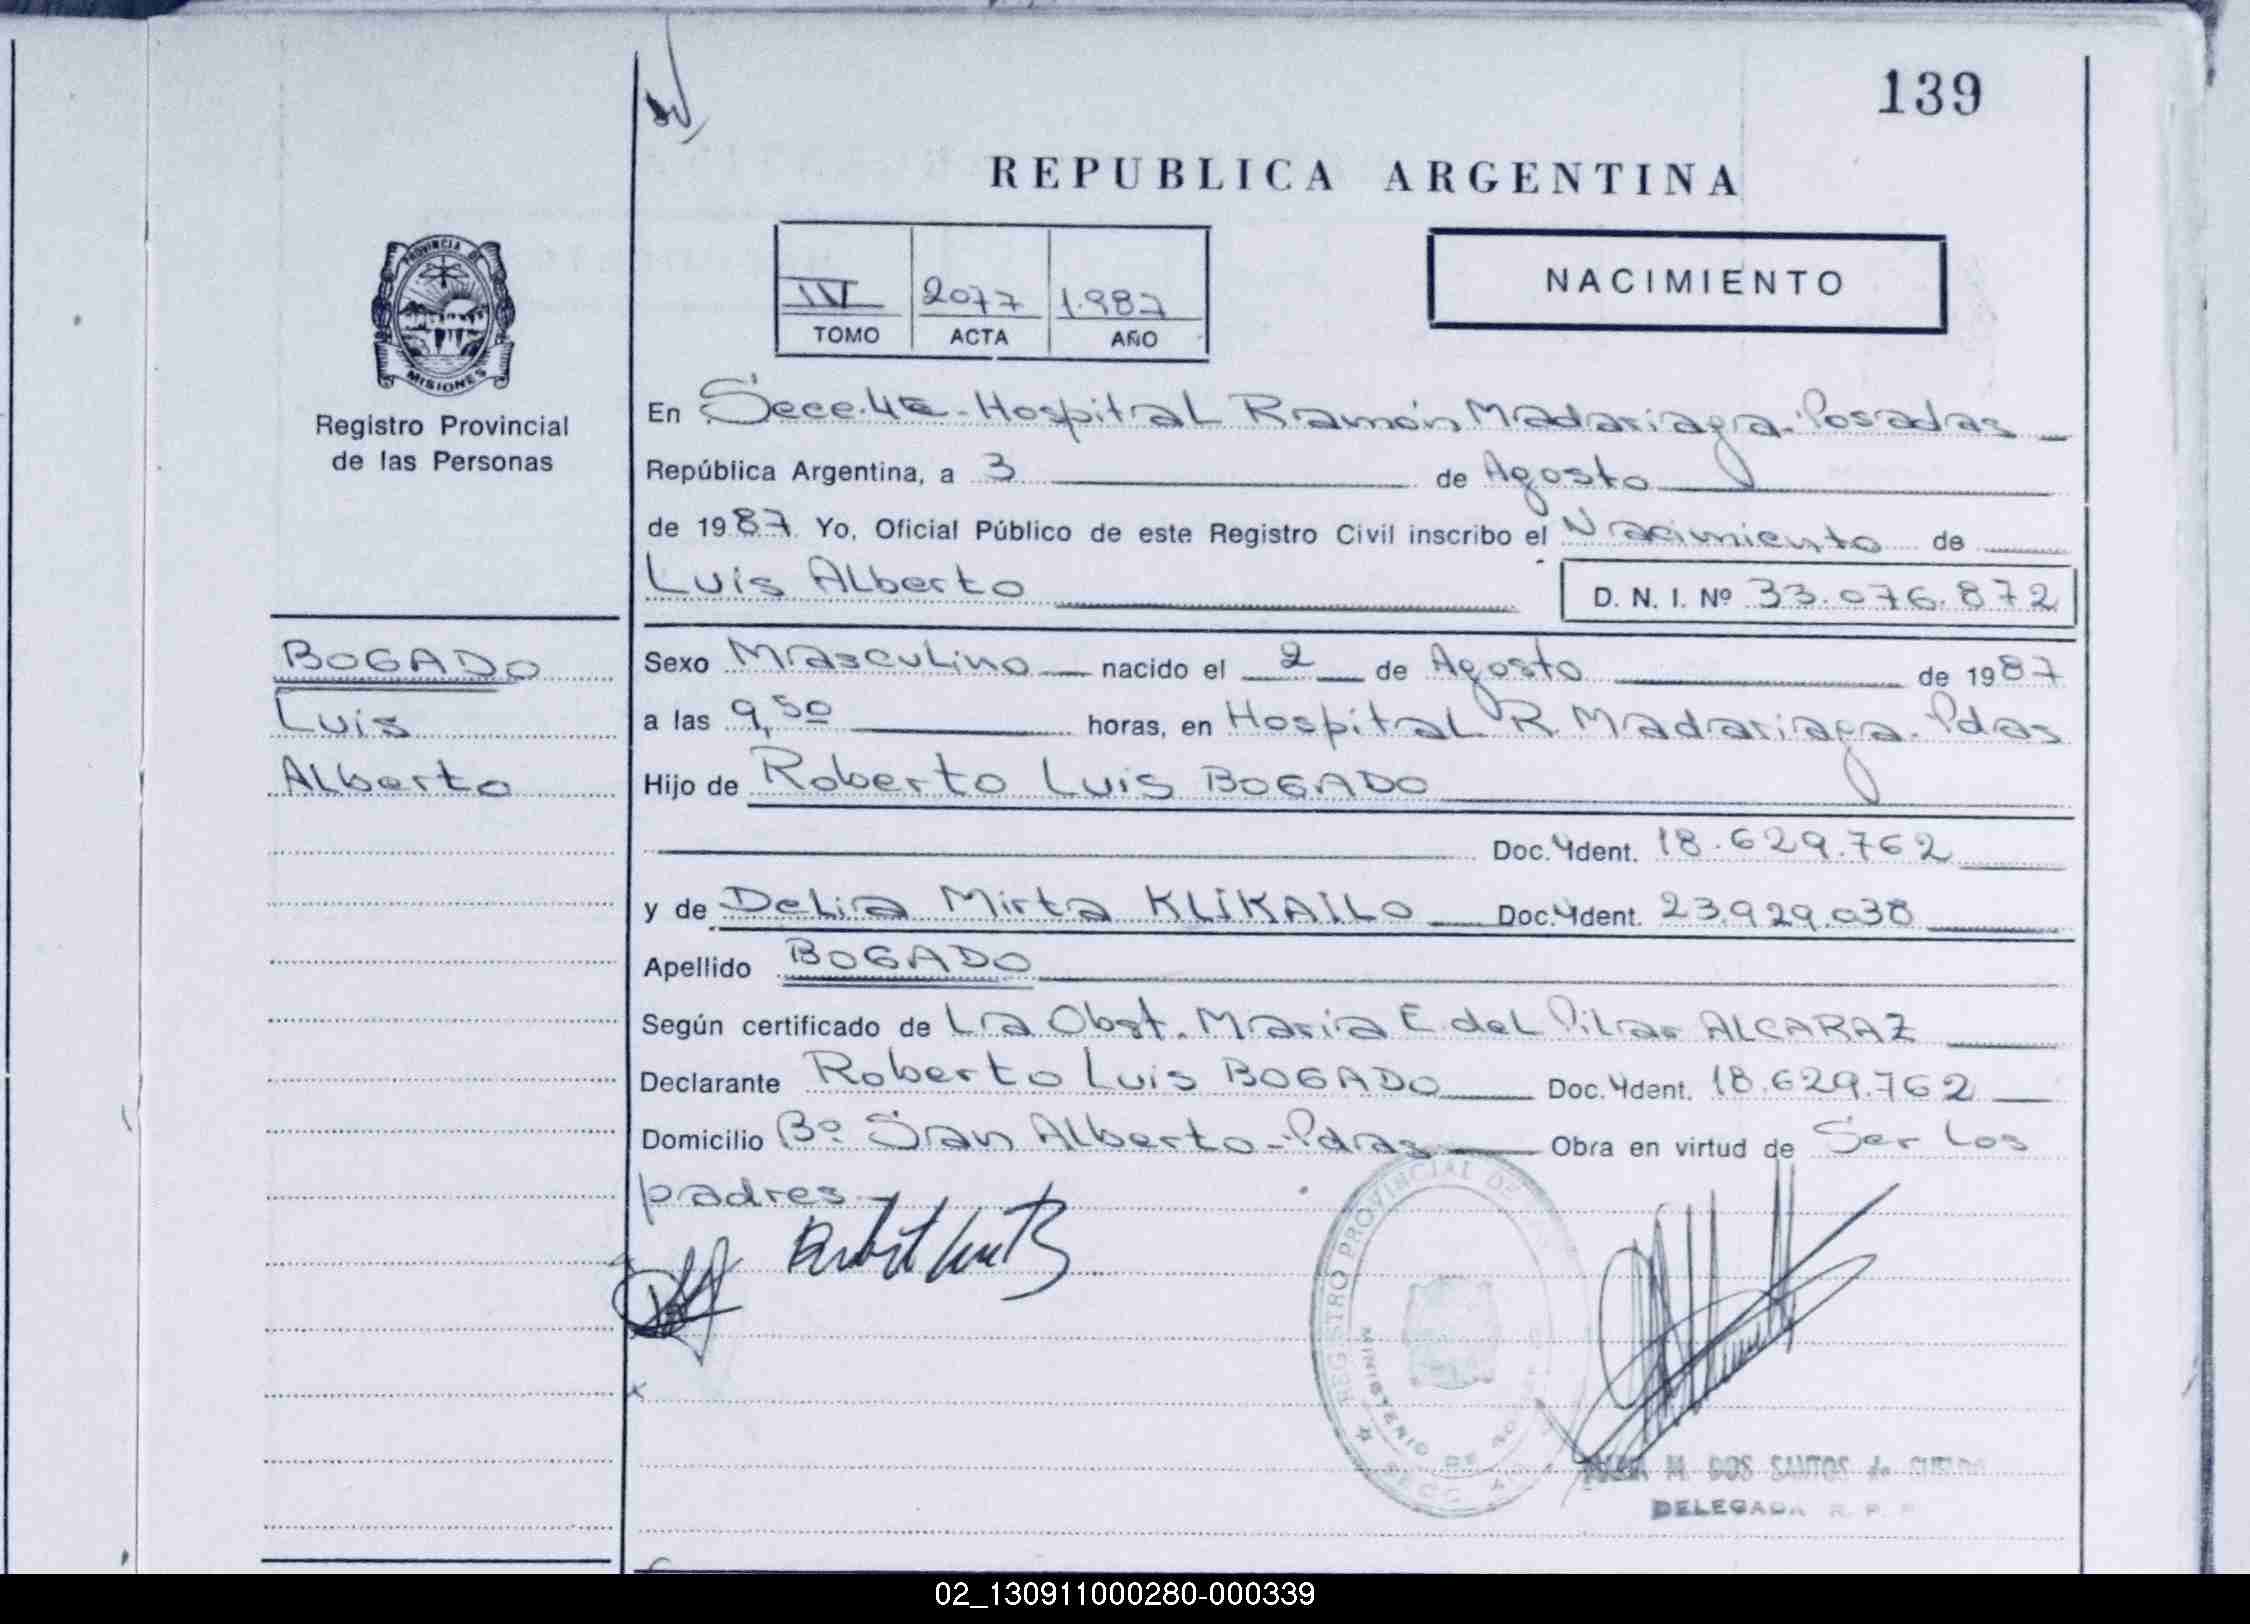 139
REPUBLICA ARGENTINA
PROVINCIA DE
MISIONES
Registro Provincial
de las Personas
2077 1.987
TOMO ACTA AÑO
NACIMIENTO
En Secc. 4ª - Hospital Ramón Madariaga - Posadas
República Argentina, a 3 de Agosto
de 1987 Yo, Oficial Público de este Registro Civil inscribo el Nacimiento de
Luis Alberto D. N. I. Nº 33.076.872
BOGADO
Luis
Alberto
Sexo Masculino nacido el 2 de Agosto de 1987
a las 9,50 horas, en Hospital R. Madariaga - Pdas
Hijo de Roberto Luis BOGADO
Doc. Ydent. 18.629.762
y de Delia Mirta KLIKAILO Doc. Ydent. 23.929.038
Apellido BOGADO
Según certificado de La Obst. María E. del Pilar ALCARAZ
Declarante Roberto Luis BOGADO Doc. Ydent. 18.629.762
Domicilio Bº San Alberto - Pdas Obra en virtud de Ser los
padres.-
REGISTRO PROVINCIAL DE
MINISTERIO DE
SECC.
M. DOS SANTOS de
DELEGADA R. P.
02_130911000280-000339